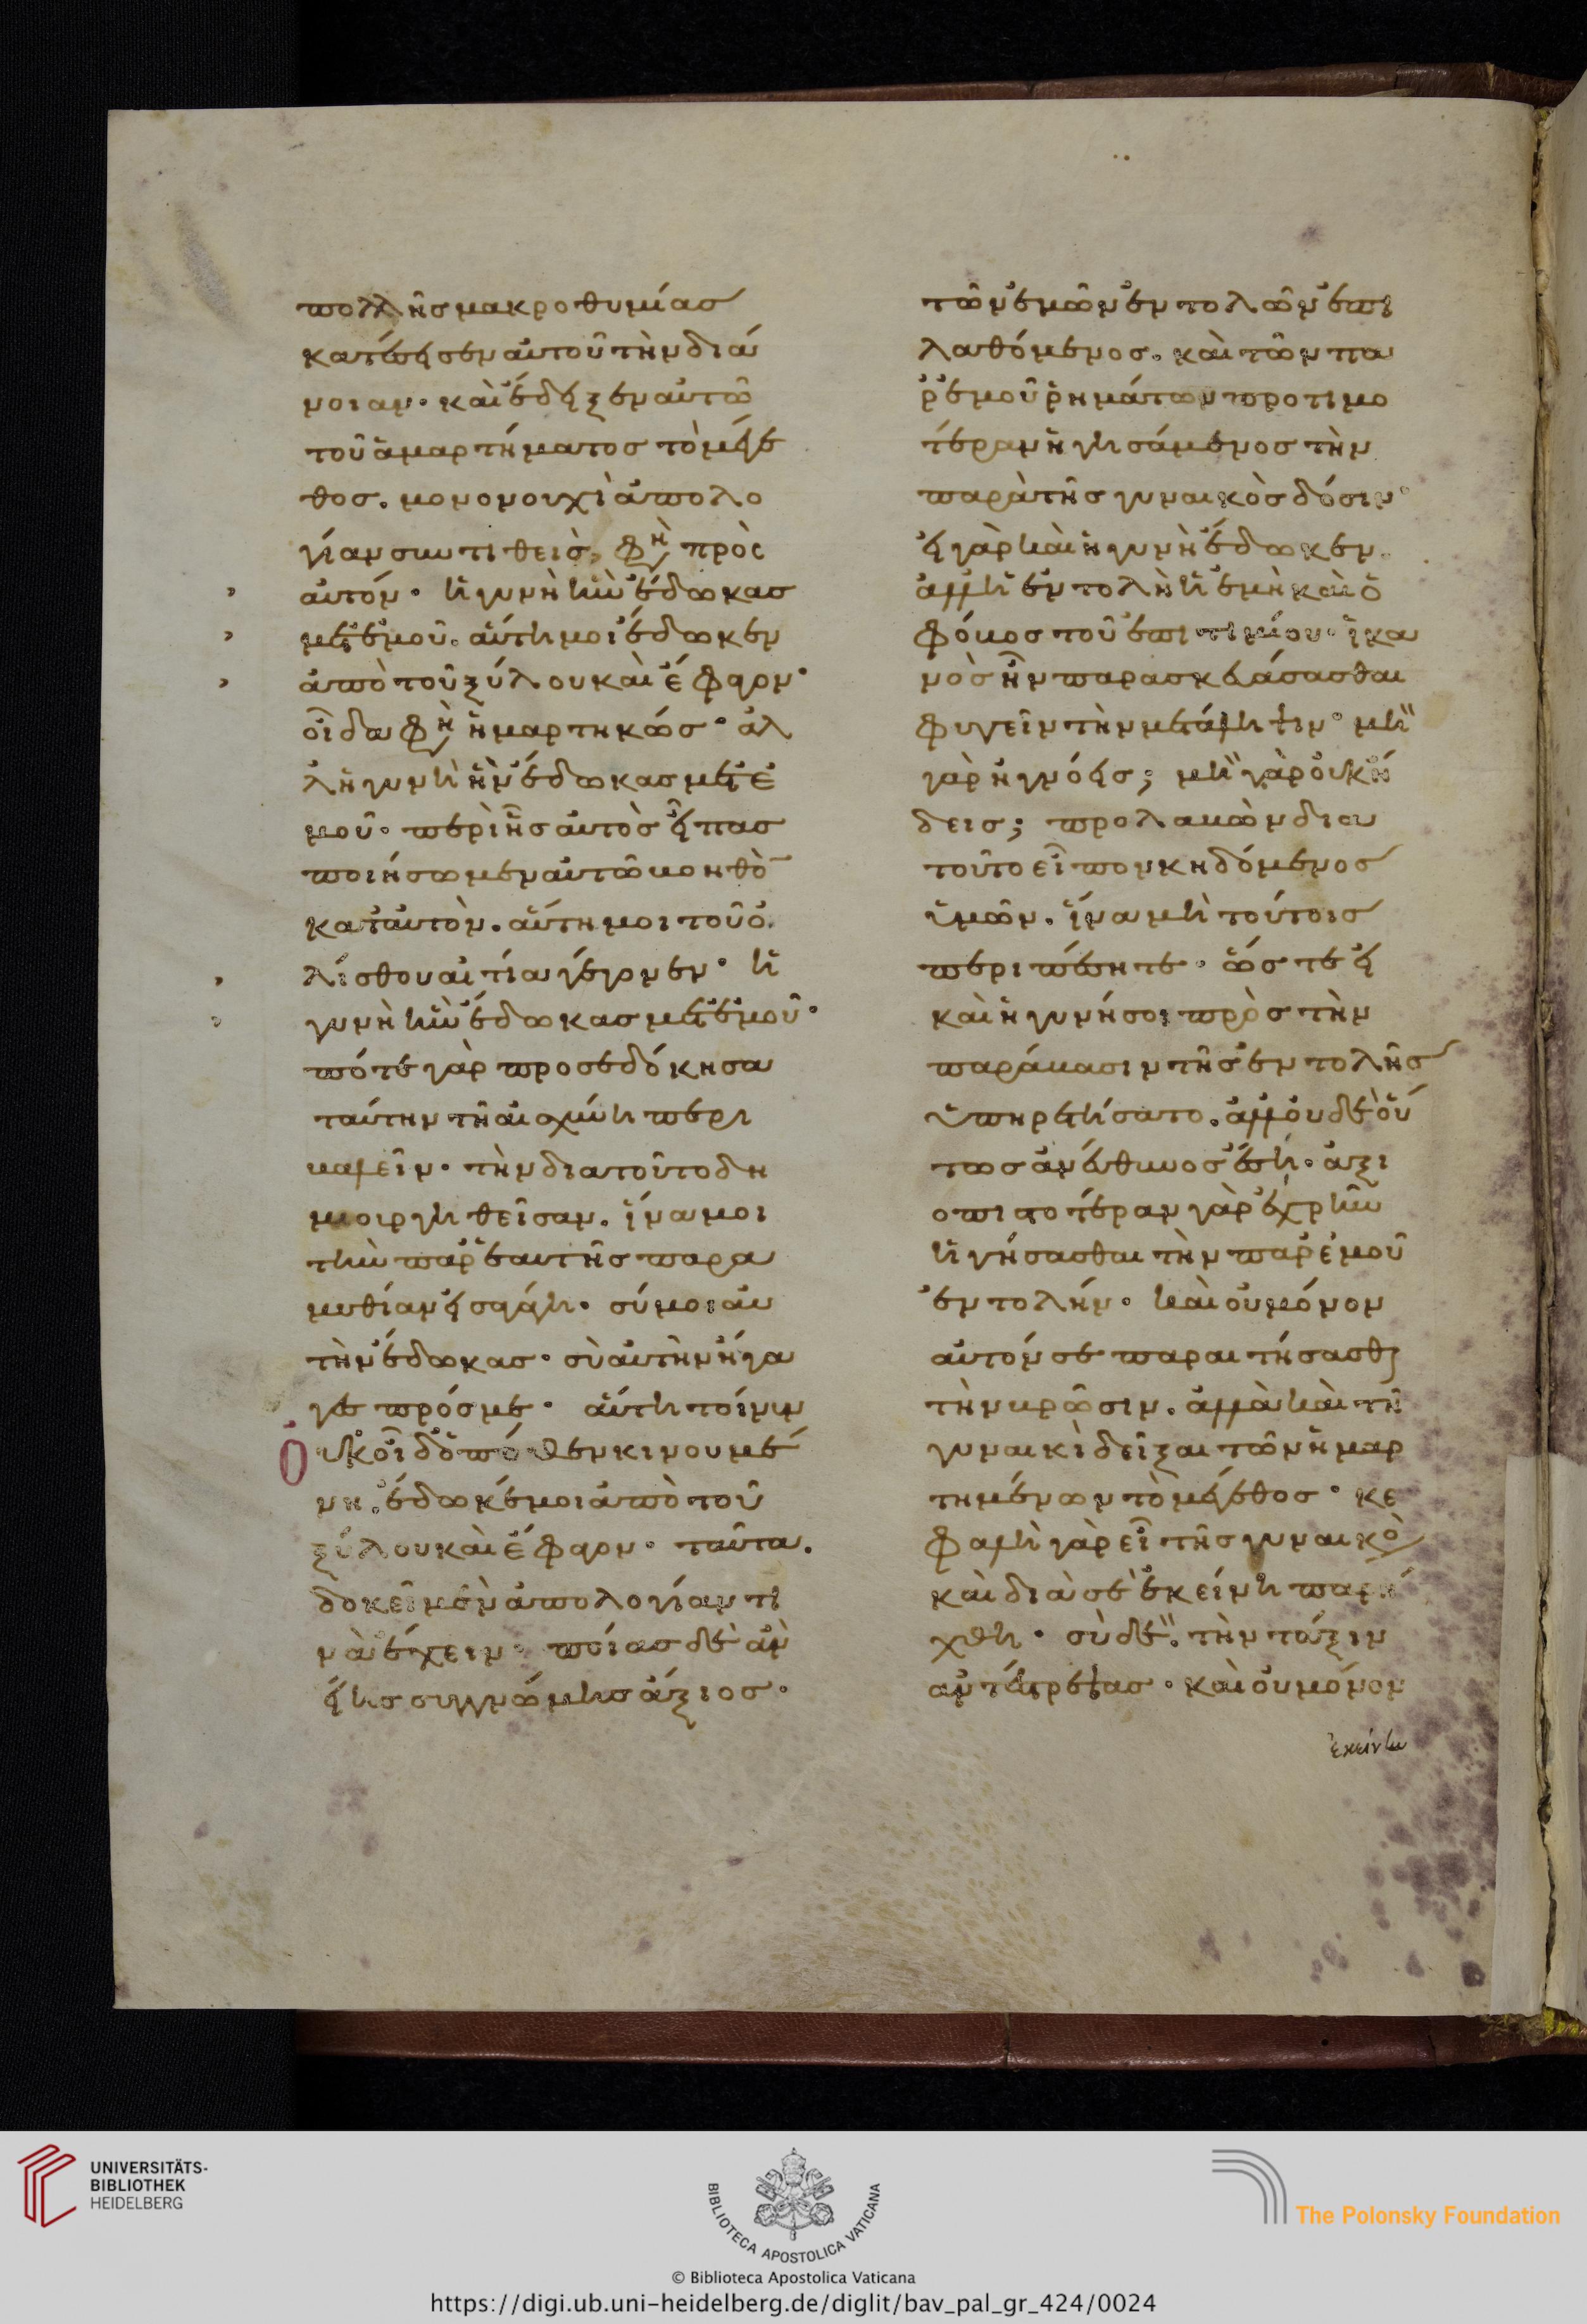 πολλῆς μακροθυμίας
κατέπεισεν αὐτοῦ τὴν διά
νοιαν· καὶ ἔδειξεν αὐτῶ
τοῦ ἁμαρτήματος τὸ μέγε
θος. μονονουχὶ ἀπολο
γίαν συντιθεὶς, φη πρὸς
αὐτόν· ἡ γυνὴ ἣν ἔδωκας
μετ' ἐμοῦ. αὕτη μοι ἔδωκεν
ἀπὸ τοῦ ξύλου καὶ ἔφαγον·
οἶδα φη ἡμαρτηκώς· ἀλ
λ' ἡ γυνὴ ἣν ἔδωκας μετ' ἐ
μοῦ· περὶ ἧς αὐτὸς εἶπας
ποιήσωμεν αὐτῶ βοηθὸ
κατ' αὐτὸν. αὕτη μοι τοῦ ὀ
λίσθου αἰτία γέγονεν· ἡ
γυνὴ ἣν ἔδωκας μετ' ἐμοῦ·
πότε γὰρ προσεδόκησα
ταύτην τῆ αἰσχύνη περι
βαλεῖν· τὴν διατοῦτο δη
μιουργηθεῖσαν. ἵνα μοι
τὴν παρ' ἑαυτῆς παρα
μυθίαν εἰσαγάγη· σύ μοι αὐ
τὴν ἔδωκας· σὺ αὐτὴν ἤγα
γες πρός με· αὕτη τοίνυν
οὐκ οἶδ' ὁπόθεν κινουμέ
νη. ἔδωκέ μοι ἀπὸ τοῦ
ξύλου καὶ ἔφαγον· ταῦτα.
δοκεῖ μὲν ἀπολογίαν τι
νὰ ἔχειν· ποίας δὲ ἂν
εἴης συγγνώμης ἄξιος·
τῶν ἐμῶν ἐντολῶν ἐπι
λαθόμενος. καὶ τῶν πα
ρ' ἐμοῦ ῥημάτων προτιμο
τέραν ἡγησάμενος τὴν
παρὰ τῆς γυναικὸς δόσιν·
εἰ γὰρ καὶ ἡ γυνὴ ἔδωκεν.
ἀλλ' ἡ ἐντολὴ ἡ ἐμὴ καὶ ὁ
φόβος τοῦ ἐπιτιμίου· ἱκα
νὸς ἦν παρασκευάσασθαι
φυγεῖν τὴν μετάληψιν· μὴ
γὰρ ἠγνόεις; μὴ γὰρ οὐκ ἤ
δεις; προλαβὼν δια
τοῦτο εἶπον κηδόμενος
ὑμῶν. ἵνα μὴ τούτοις
περιπέσητε· ὥστε εἰ
καὶ ἡ γυνή σοι πρὸς τὴν
παράβασιν τῆς ἐντολῆς
ὑπηρετήσατο. ἀλλ' οὐδὲ οὕ
τως ἀνεύθυνος ἔση· ἀξι
οπιστοτέραν γὰρ ἐχρῆν
ἡγήσασθαι τὴν παρ' ἐμοῦ
ἐντολήν· καὶ οὐ μόνον
αὐτόν σε παραιτήσασθαι
τὴν βρῶσιν. ἀλλὰ καὶ τῆ
γυναικὶ δεῖξαι τῶν ἡμαρ
τημένων τὸ μέγεθος· κε
φαλὴ γὰρ εἶ τῆς γυναικὸ
καὶ διὰ σὲ ἐκείνη παρή
χθη· σὺ δὲ. τὴν τάξιν
ἀντέστρεψας· καὶ οὐ μόνον
ἐκείνην
UNIVERSITÄTS-
BIBLIOTHEK
HEIDELBERG
BIBLIOTECA APOSTOLICA VATICANA
The Polonsky Foundation
© Biblioteca Apostolica Vaticana
https://digi.ub.uni-heidelberg.de/diglit/bav_pal_gr_424/0024